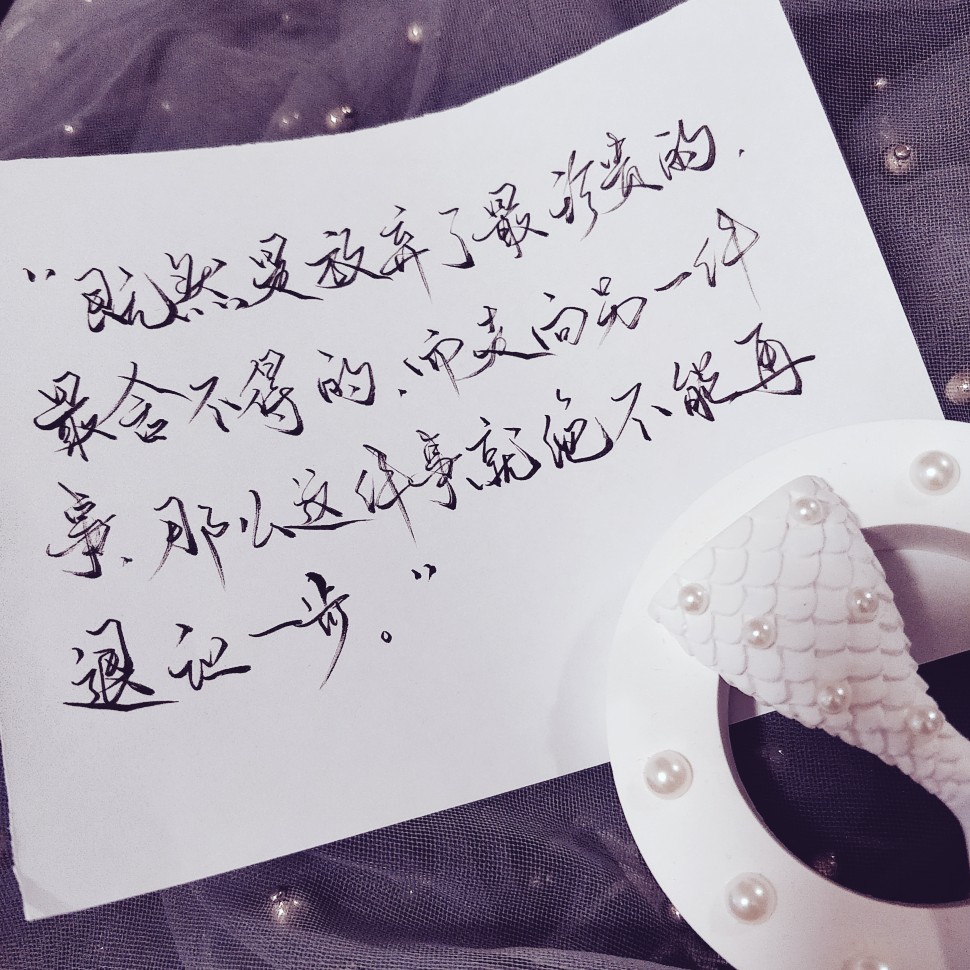 “既然是放弃了最珍贵的,
最舍不得的,而走向另一件
事,那么这件事就绝不能再
退让一步。”